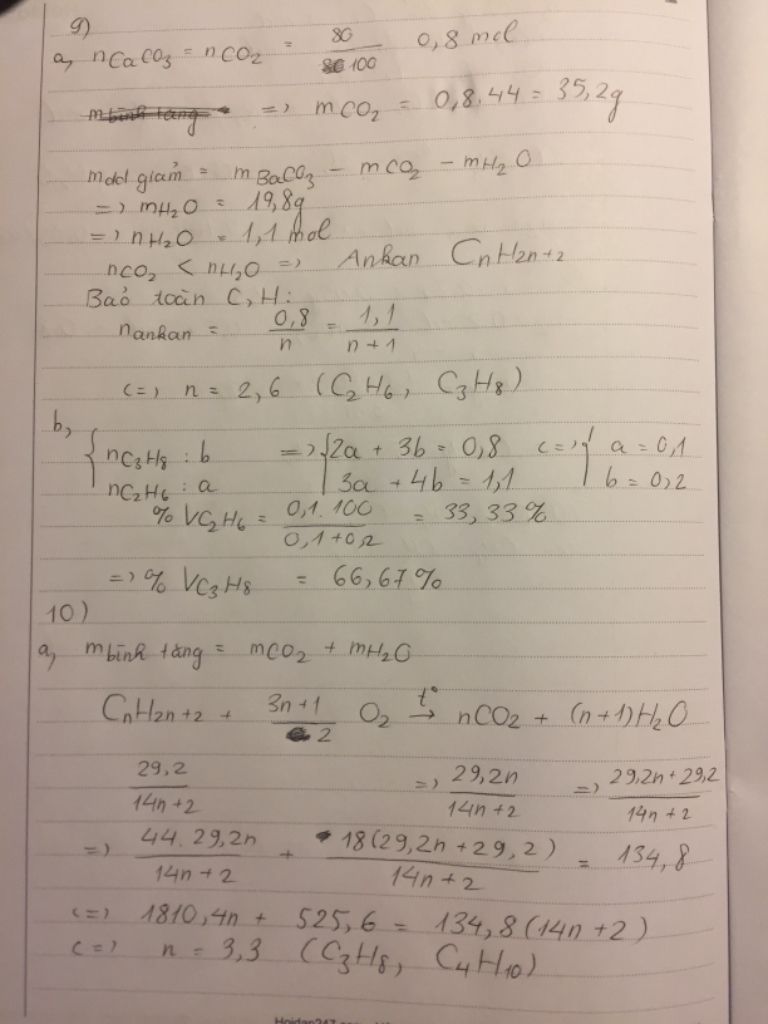 9)
a, nCaCO3 = nCO2 = 80/100 0,8 mol
=> mCO2 = 0,8.44 = 35,2g
mdd giảm = mBaCO3 - mCO2 - mH2O
=> mH2O = 19,8g
=> nH2O = 1,1 mol
nCO2 < nH2O => Ankan CnH2n+2
Bảo toàn C, H:
nankan = 0,8/n = 1,1/(n+1)
<=> n = 2,6 (C2H6, C3H8)
b,
{ nC3H8 : b => { 2a + 3b = 0,8 <=> { a = 0,1
nC2H6 : a 3a + 4b = 1,1 b = 0,2
% VC2H6 = 0,1.100/(0,1+0,2) = 33,33%
=> % VC3H8 = 66,67%
10)
a, mbình tăng = mCO2 + mH2O
CnH2n+2 + (3n+1)/2 O2 t°→ nCO2 + (n+1)H2O
29,2/(14n+2) => 29,2n/(14n+2) => (29,2n+29,2)/(14n+2)
=> 44.29,2n/(14n+2) + 18(29,2n+29,2)/(14n+2) = 134,8
<=> 1810,4n + 525,6 = 134,8(14n+2)
<=> n = 3,3 (C3H8, C4H10)